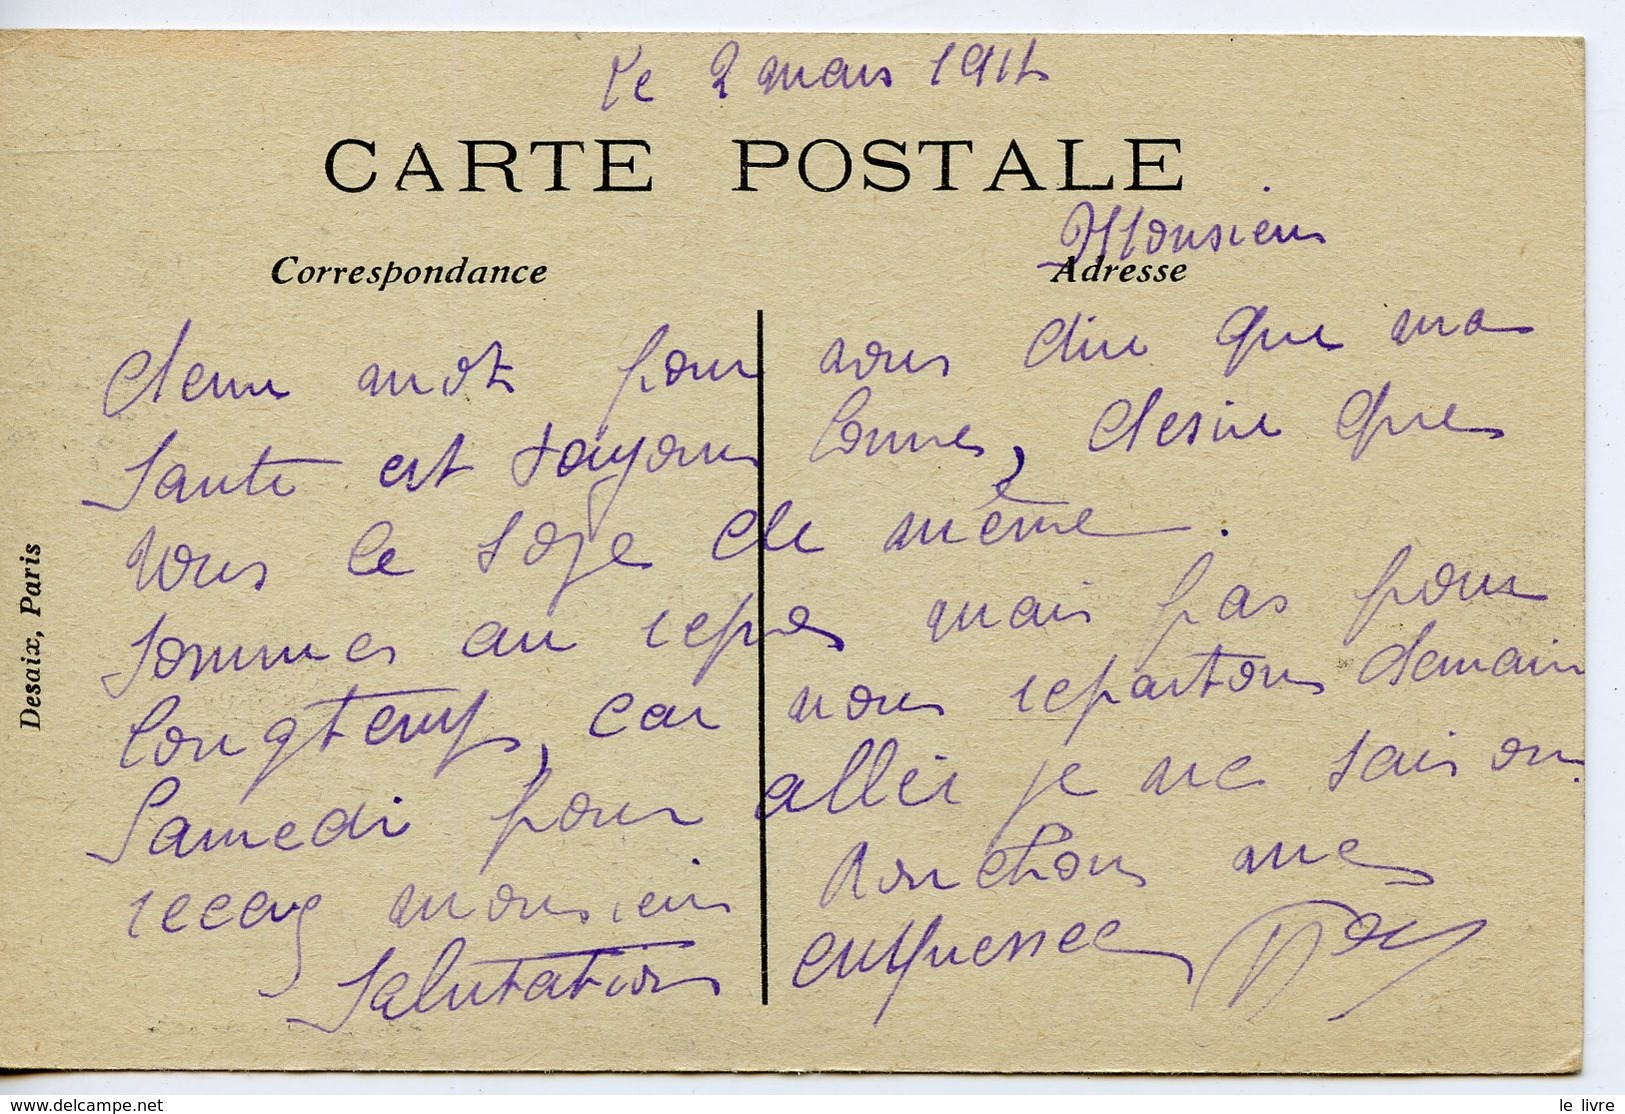 le 2 mars 191
CARTE POSTALE
Monsieur
Correspondance
Adresse
deux mots pour vous dire que ma
Santé est toujours bonne, desire que
Vous le soye de même.
Sommes au repos mais pas pour
longtemps, car nous repartons demain
Samedi pour aller je ne sais ou.
recevez monsieur Ronchon mes
Salutations empressees
Desaix, Paris
www.delcampe.net
le livre